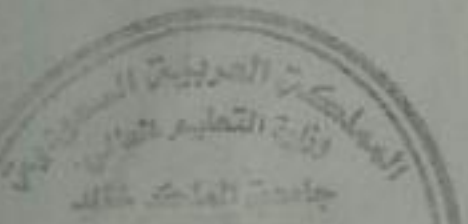 المملكة العربية السعودية
وزارة التعليم العالي
جامعة الملك خالد